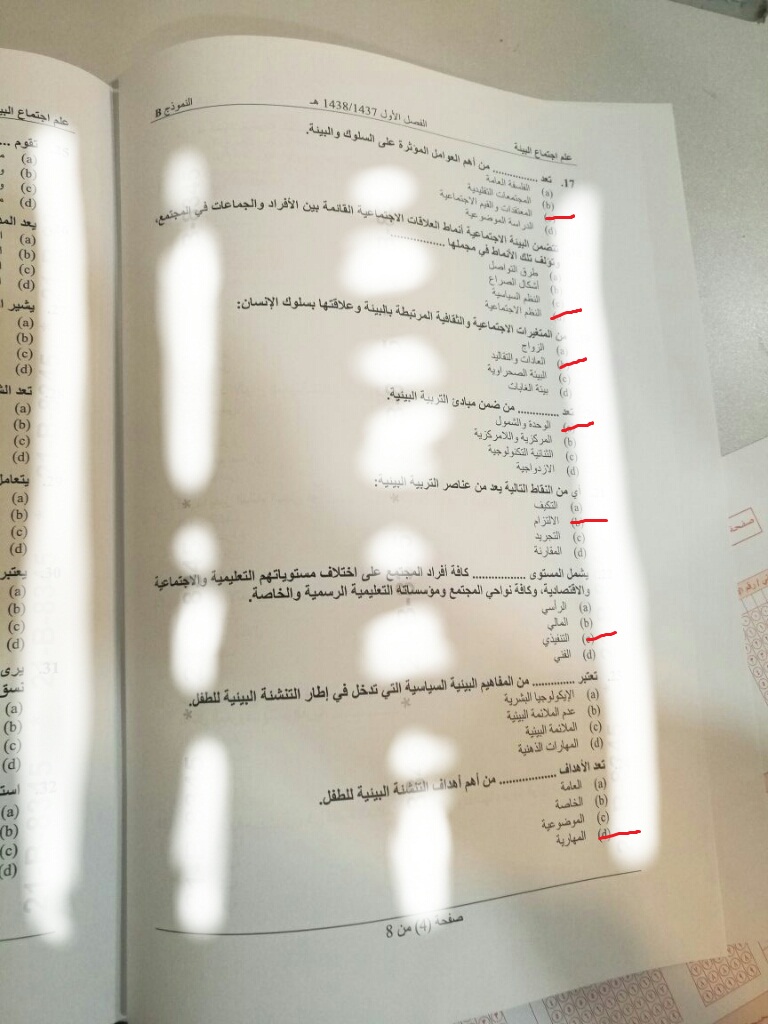 علم اجتماع البيئة
الفصل الأول 1438/1437 هـ
النموذج B
17. تعد .............. من أهم العوامل الموثرة على السلوك والبيئة.
(a) الفلسفة العامة
(b) المجتمعات التقليدية
المعتقدات والقيم الاجتماعية
(d) الدراسة الموضوعية
تتضمن البيئة الاجتماعية أنماط العلاقات الاجتماعية القائمة بين الأفراد والجماعات في المجتمع،
وتؤلف تلك الأنماط في مجملها ..............
طرق التواصل
أشكال الصراع
النظم السياسية
النظم الاجتماعية
من المتغيرات الاجتماعية والثقافية المرتبطة بالبيئة وعلاقتها بسلوك الإنسان:
(a) الزواج
العادات والتقاليد
(c) البيئة الصحراوية
(d) بيئة الغابات
تعد ............. من ضمن مبادئ التربية البيئية.
الوحدة والشمول
(b) المركزية واللامركزية
(c) الثنائية التكنولوجية
(d) الازدواجية
أي من النقاط التالية يعد من عناصر التربية البيئية:
(a) التكيف
(b) الالتزام
(c) التجريد
(d) المقارنة
يشمل المستوى ................ كافة أفراد المجتمع على اختلاف مستوياتهم التعليمية والاجتماعية
والاقتصادية، وكافة نواحي المجتمع ومؤسساته التعليمية الرسمية والخاصة.
(a) الرأسي
(b) المالي
(c) التنفيذي
(d) الفني
تعتبر ............. من المفاهيم البيئية السياسية التي تدخل في إطار التنشئة البيئية للطفل.
(a) الإيكولوجيا البشرية
(b) عدم الملائمة البيئية
(c) الملائمة البيئية
(d) المهارات الذهنية
تعد الأهداف ................. من أهم أهداف التنشئة البيئية للطفل.
(a) العامة
(b) الخاصة
(c) الموضوعية
(d) المهارية
صفحة (4) من 8
علم اجتماع
تقوم ...
(a)
(b)
(c)
(d)
يعد
(a)
(b)
(c)
(d)
يشير
(a)
(b)
(c)
(d)
تعد
(a)
(b)
(c)
(d)
يتعامل
(a)
(b)
(c)
(d)
يعتبر
(a)
(b)
(c)
(d)
يرى
نسق
(a)
(b)
(c)
(d)
(a)
(b)
(c)
(d)
صفحة